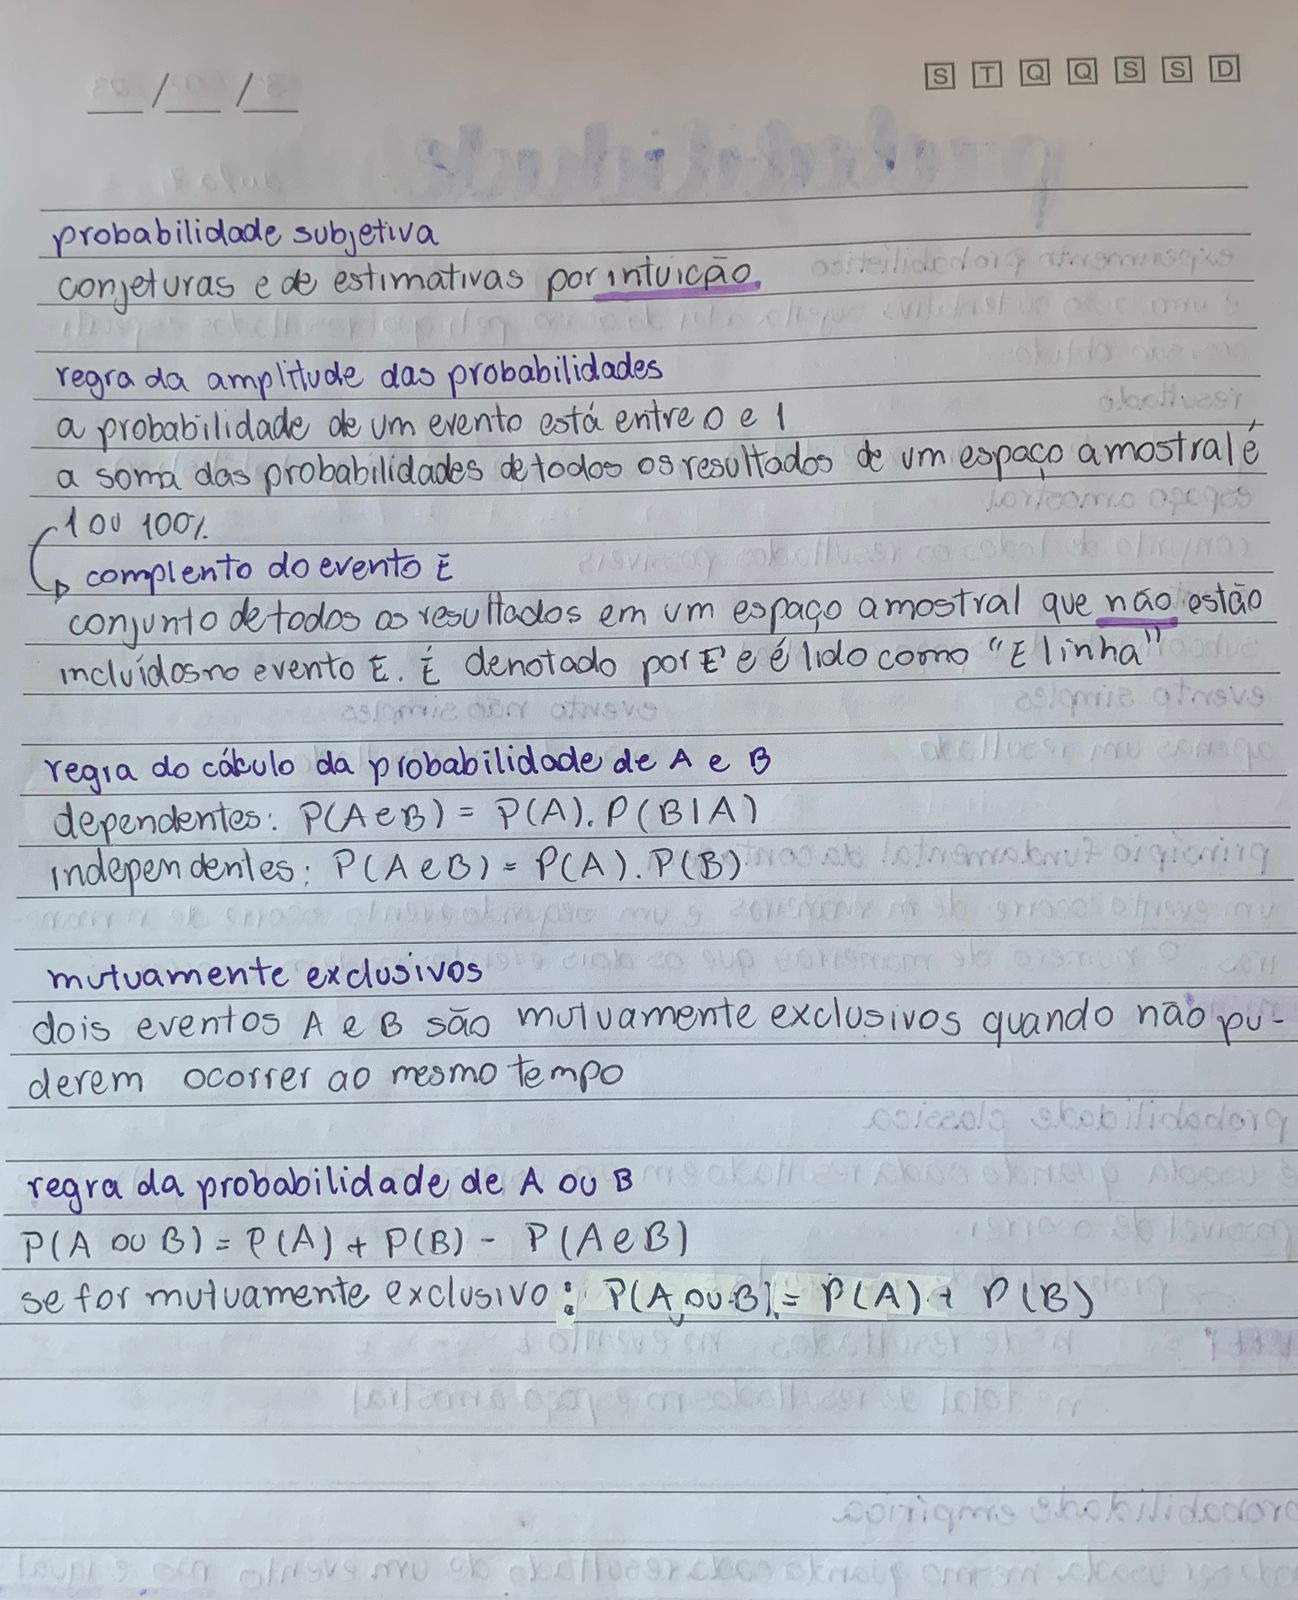 __/__/__ S T Q Q S S D
probabilidade subjetiva
conjeturas e de estimativas por intuição.
regra da amplitude das probabilidades
a probabilidade de um evento está entre 0 e 1
a soma das probabilidades de todos os resultados de um espaço amostral é
1 ou 100%
complento do evento E
conjunto de todos os resultados em um espaço amostral que não estão
incluídos no evento E. É denotado por E' e é lido como "E linha"
regra do cálculo da probabilidade de A e B
dependentes: P(A e B) = P(A). P(B|A)
independentes: P(A e B) = P(A). P(B)
mutuamente exclusivos
dois eventos A e B são mutuamente exclusivos quando não pu-
derem ocorrer ao mesmo tempo
regra da probabilidade de A ou B
P(A ou B) = P(A) + P(B) - P(A e B)
se for mutuamente exclusivo: P(A ou B) = P(A) + P(B)